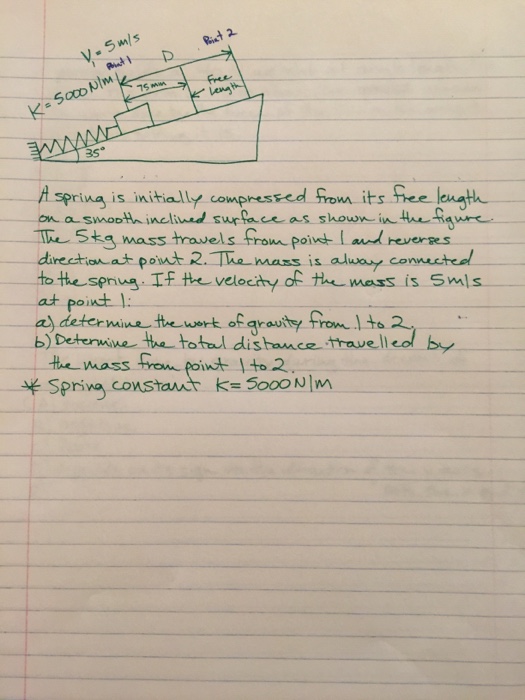 V₁ = 5 m/s
Point 1
Point 2
D
K = 5000 N/m
75mm
Free
Length
35°
A spring is initially compressed from its free length
on a smooth inclined surface as shown in the figure.
The 5kg mass travels from point 1 and reverses
direction at point 2. The mass is alway connected
to the spring. If the velocity of the mass is 5m/s
at point 1:
a) determine the work of gravity from 1 to 2.
b) Determine the total distance travelled by
the mass from point 1 to 2.
* Spring constant K= 5000N/m